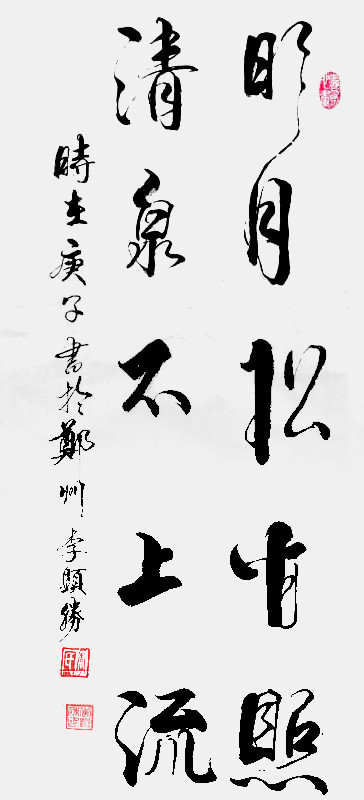 明月松間照
清泉石上流
時在庚子書於鄭州李顯勝